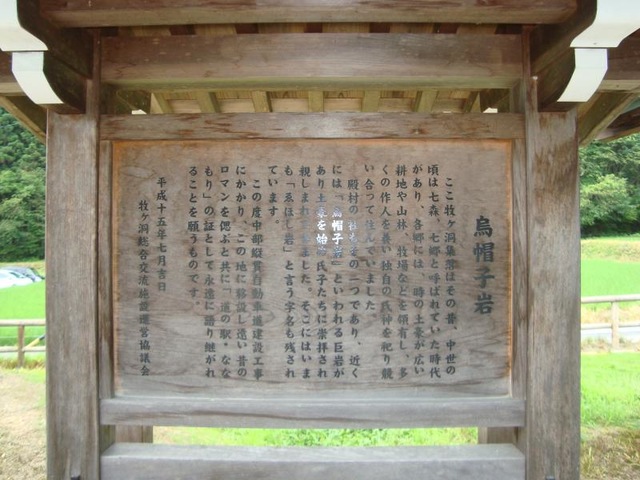 烏帽子岩
ここ牧ヶ洞集落はその昔、中世の
頃は七森、七郷と呼ばれていた時代
があり、各郷には、時の土豪が広い
耕地や山林、牧場などを領有し、多
くの作人を養い独自の氏神を祀り競
い合って住んでいました
殿村の社もその一つであり、近く
には「烏帽子岩」といわれる巨岩が
あり土豪を始め氏子たちに崇拝され
親しまれてきました。そこにはいま
も「ゑほし岩」と言う字名も残され
ています。
この度中部縦貫自動車道建設工事
にかかり、この地に移設し遠い昔の
ロマンを偲ぶと共に「道の駅・なな
もり」の証として永遠に語り継がれ
ることを願うものです。
平成十五年七月吉日
牧ヶ洞総合交流施設運営協議会